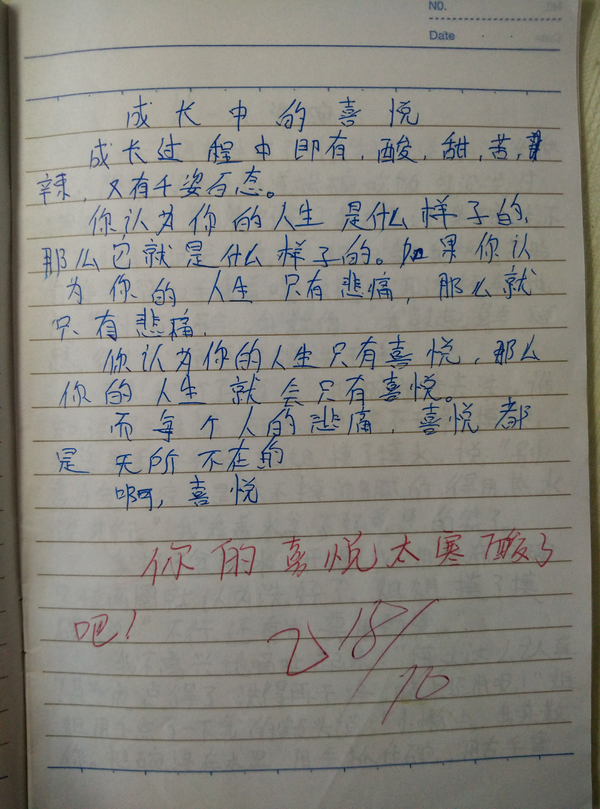 NO.
Date
成长中的喜悦
成长过程中即有,酸,甜,苦,
辣,又有千姿百态。
你认为你的人生是什么样子的,
那么它就是什么样子的。如果你认
为你的人生只有悲痛,那么就
只有悲痛.
你认为你的人生只有喜悦,那么
你的人生就会只有喜悦。
而每个人的悲痛,喜悦都
是无所不在的
啊,喜悦
你的喜悦太寒酸了
吧!
18/10